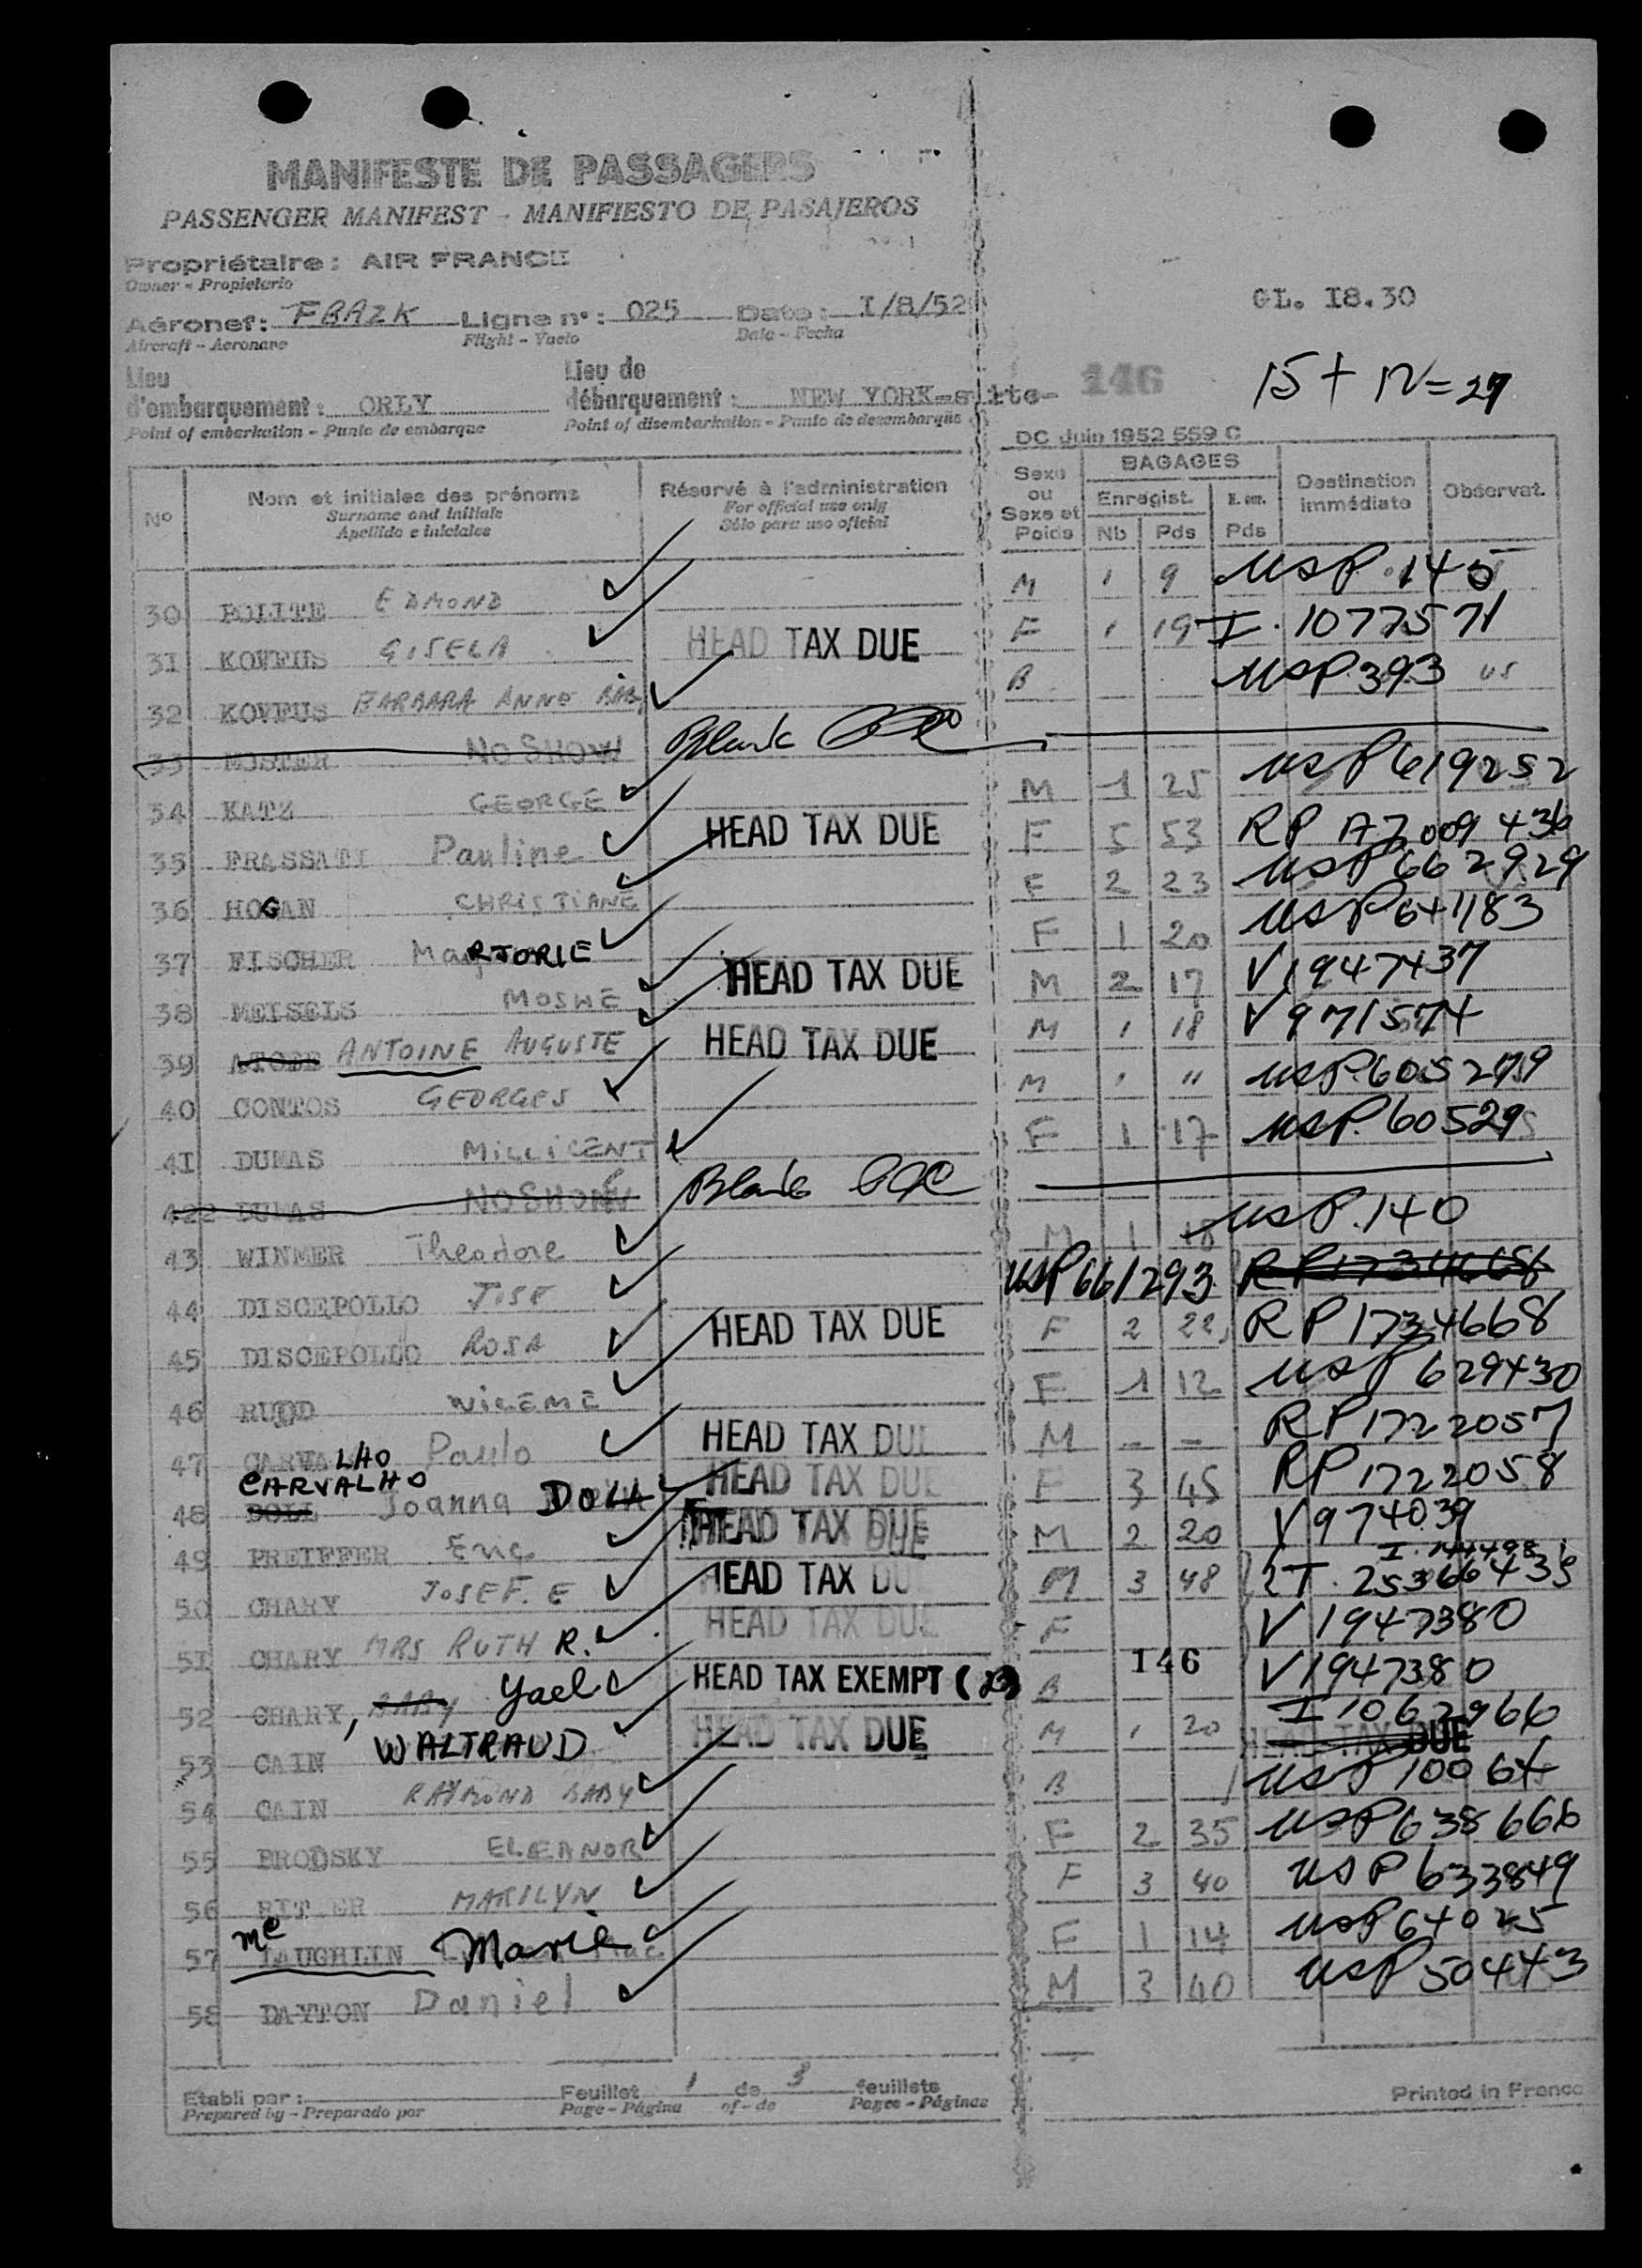 MANIFESTE DE PASSAGERS
PASSENGER MANIFEST - MANIFIESTO DE PASAJEROS
Propriétaire : AIR FRANCE
Owner - Propietario
GL. I8.30
Aéronef : FBAZK Ligne n° : 025 Date : I/8/52
Aircraft - Aeronave Flight - Vuelo Date - Fecha
Lieu d'embarquement : ORLY Lieu de débarquement : NEW YORK-suite- 146 15 + 12 = 27
Point of embarkation - Punto de embarque Point of disembarkation - Punto de desembarque
DC Juin 1952 559 C
Nº Nom et initiales des prénoms Réservé à l'administration Sexe ou Sexe et Poids BAGAGES Destination immédiate Observat.
Surname and initials For official use only Enregist.
Apellido e iniciales Sólo para uso oficial Nb Pds Pds
30 POLITE EDMOND M 1 9 USP.145
3I KOVFUS GISELA HEAD TAX DUE F 1 19 I.1077571
32 KOVFUS BARBARA ANNE BABY B USP.393 US
33 NO SHOW Blank
34 KATZ GEORGE M 1 25 USP619252
35 FRASSATI Pauline HEAD TAX DUE F 5 53 RP A7009436
36 HOGAN CHRISTIANE F 2 23 USP662929
37 FISCHER MaRJORIE F 1 20 USP641183
38 MEISELS MOSHE HEAD TAX DUE M 2 17 V1947437
39 ANTOINE AUGUSTE HEAD TAX DUE M 1 18 V971574
40 CONTOS GEORGES M 1 11 USP605279
4I DUMAS MILLICENT F 1 17 USP.60529
422 DUMAS NO SHOW Blank
43 WINMER Theodore M 1 18 USP.140
44 DISCEPOLLO JOSE USP661293 RP1734668
45 DISCEPOLLO ROSA HEAD TAX DUE F 2 22 RP1734668
46 RUDD F 1 12 USP629430
47 CARVALHO Paulo HEAD TAX DUE M - - RP1722057
48 DOLL CARVALHO Joanna DOLL HEAD TAX DUE F 3 45 RP1722058
49 PREIFFER Eric HEAD TAX DUE M 2 20 V974039
50 CHARY JOSEF. E HEAD TAX DUE M 3 48
5I CHARY MRS RUTH R. HEAD TAX DUE F V1947380
52 CHARY, BABY Yael HEAD TAX EXEMPT B 146 V1947380
53 CAIN WALTRAUD HEAD TAX DUE M 1 20 I1062966 HEAD TAX DUE
54 CAIN RAYMOND BABY B USP10064
55 BRODSKY ELEANOR F 2 35 USP638666
56 MARILYN F 3 40 USP633849
57 Mc LAUGHLIN Marie F 1 14 USP64025
58 DAYTON Daniel M 3 40 USP50443
Etabli par : Feuillet 1 de 3 feuillets Printed in France
Prepared by - Preparado por Page - Página of - de Pages - Páginas